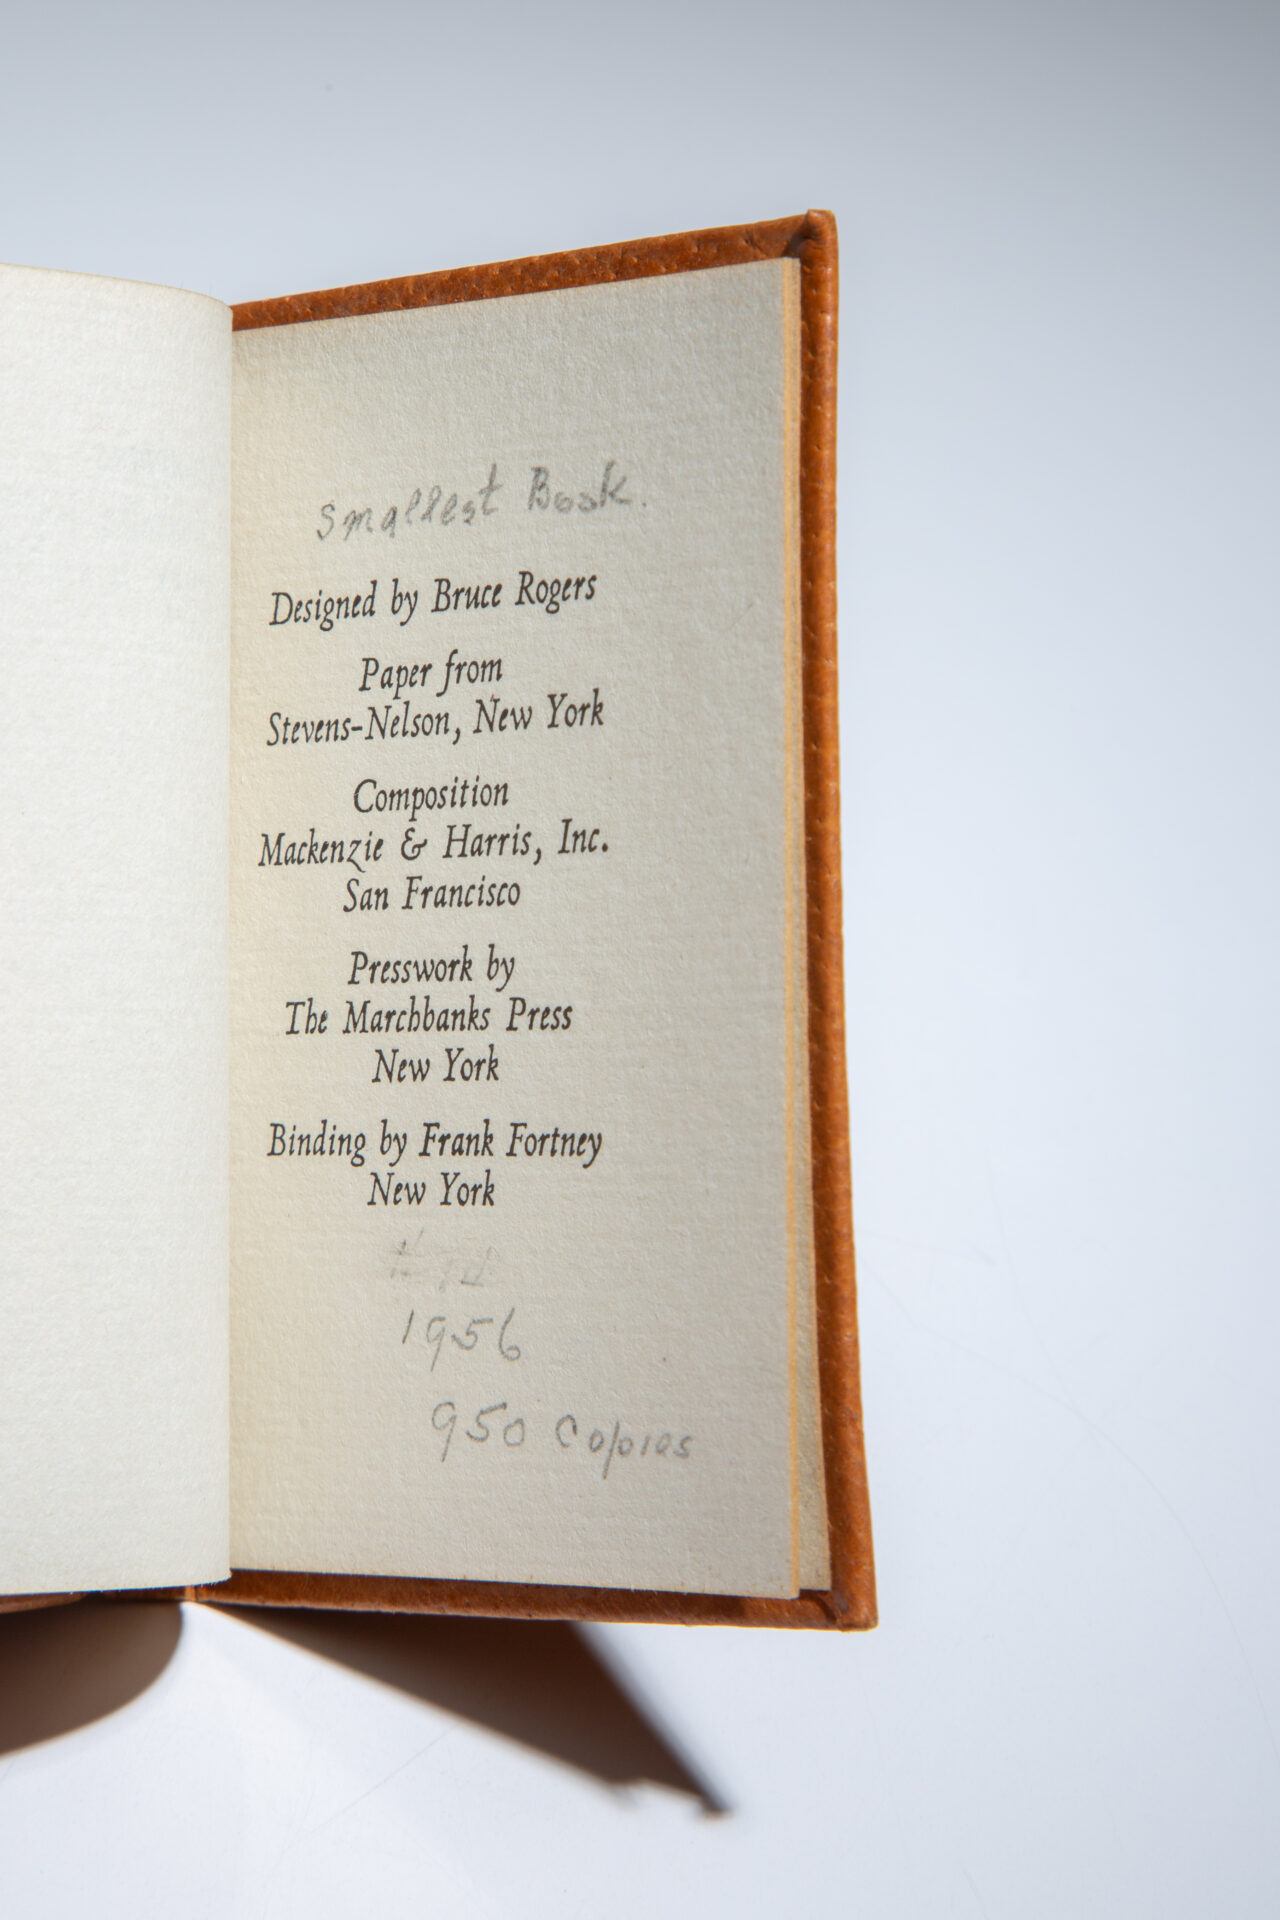 Smallest Book.
Designed by Bruce Rogers
Paper from
Stevens-Nelson, New York
Composition
Mackenzie & Harris, Inc.
San Francisco
Presswork by
The Marchbanks Press
New York
Binding by Frank Fortney
New York
1956
950 Copies